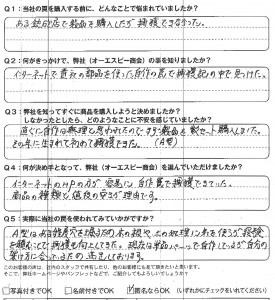 Q1：当社の罠を購入する前に、どんなことで悩んでいましたか？
ある銃砲店で製品を購入したが捕獲できなかった。
Q2：何がきっかけで、弊社（オーエスピー商会）の事を知りましたか？
インターネットで貴社の部品を使った自作の罠で捕獲記の中で見つけた。
Q3：弊社を知ってすぐに商品を購入しようと決めましたか？
しなかったとしたら、どのようなことに不安を感じていますか？
直ぐに自作は無理と思われたので 製品を 購入しました。
その年に生まれて初めて捕獲できた。（A型）
Q4：何が決め手となって、弊社（オーエスピー商会）を選んでいただけましたか？
インターネットのHPの方が 容易に 自作罠で捕獲できていた。
商品の種類と値段の安さが理由です。
Q5：実際に当社の罠を使われてみていかがですか？
A型は
捕獲が向上してきた。現在は部品パーツで自作し 自分の
満足しております。
このお客様の声は、社内のスタッフで共有したり、他のお客様にも見て頂きたいと思います。
そこで、弊社ホームページやパンフレットなどで、ご紹介してもよろしいでしょうか？
□写真付きでOK □名前付きでOK ☑匿名ならOK（いずれかにチェックをいれてください）